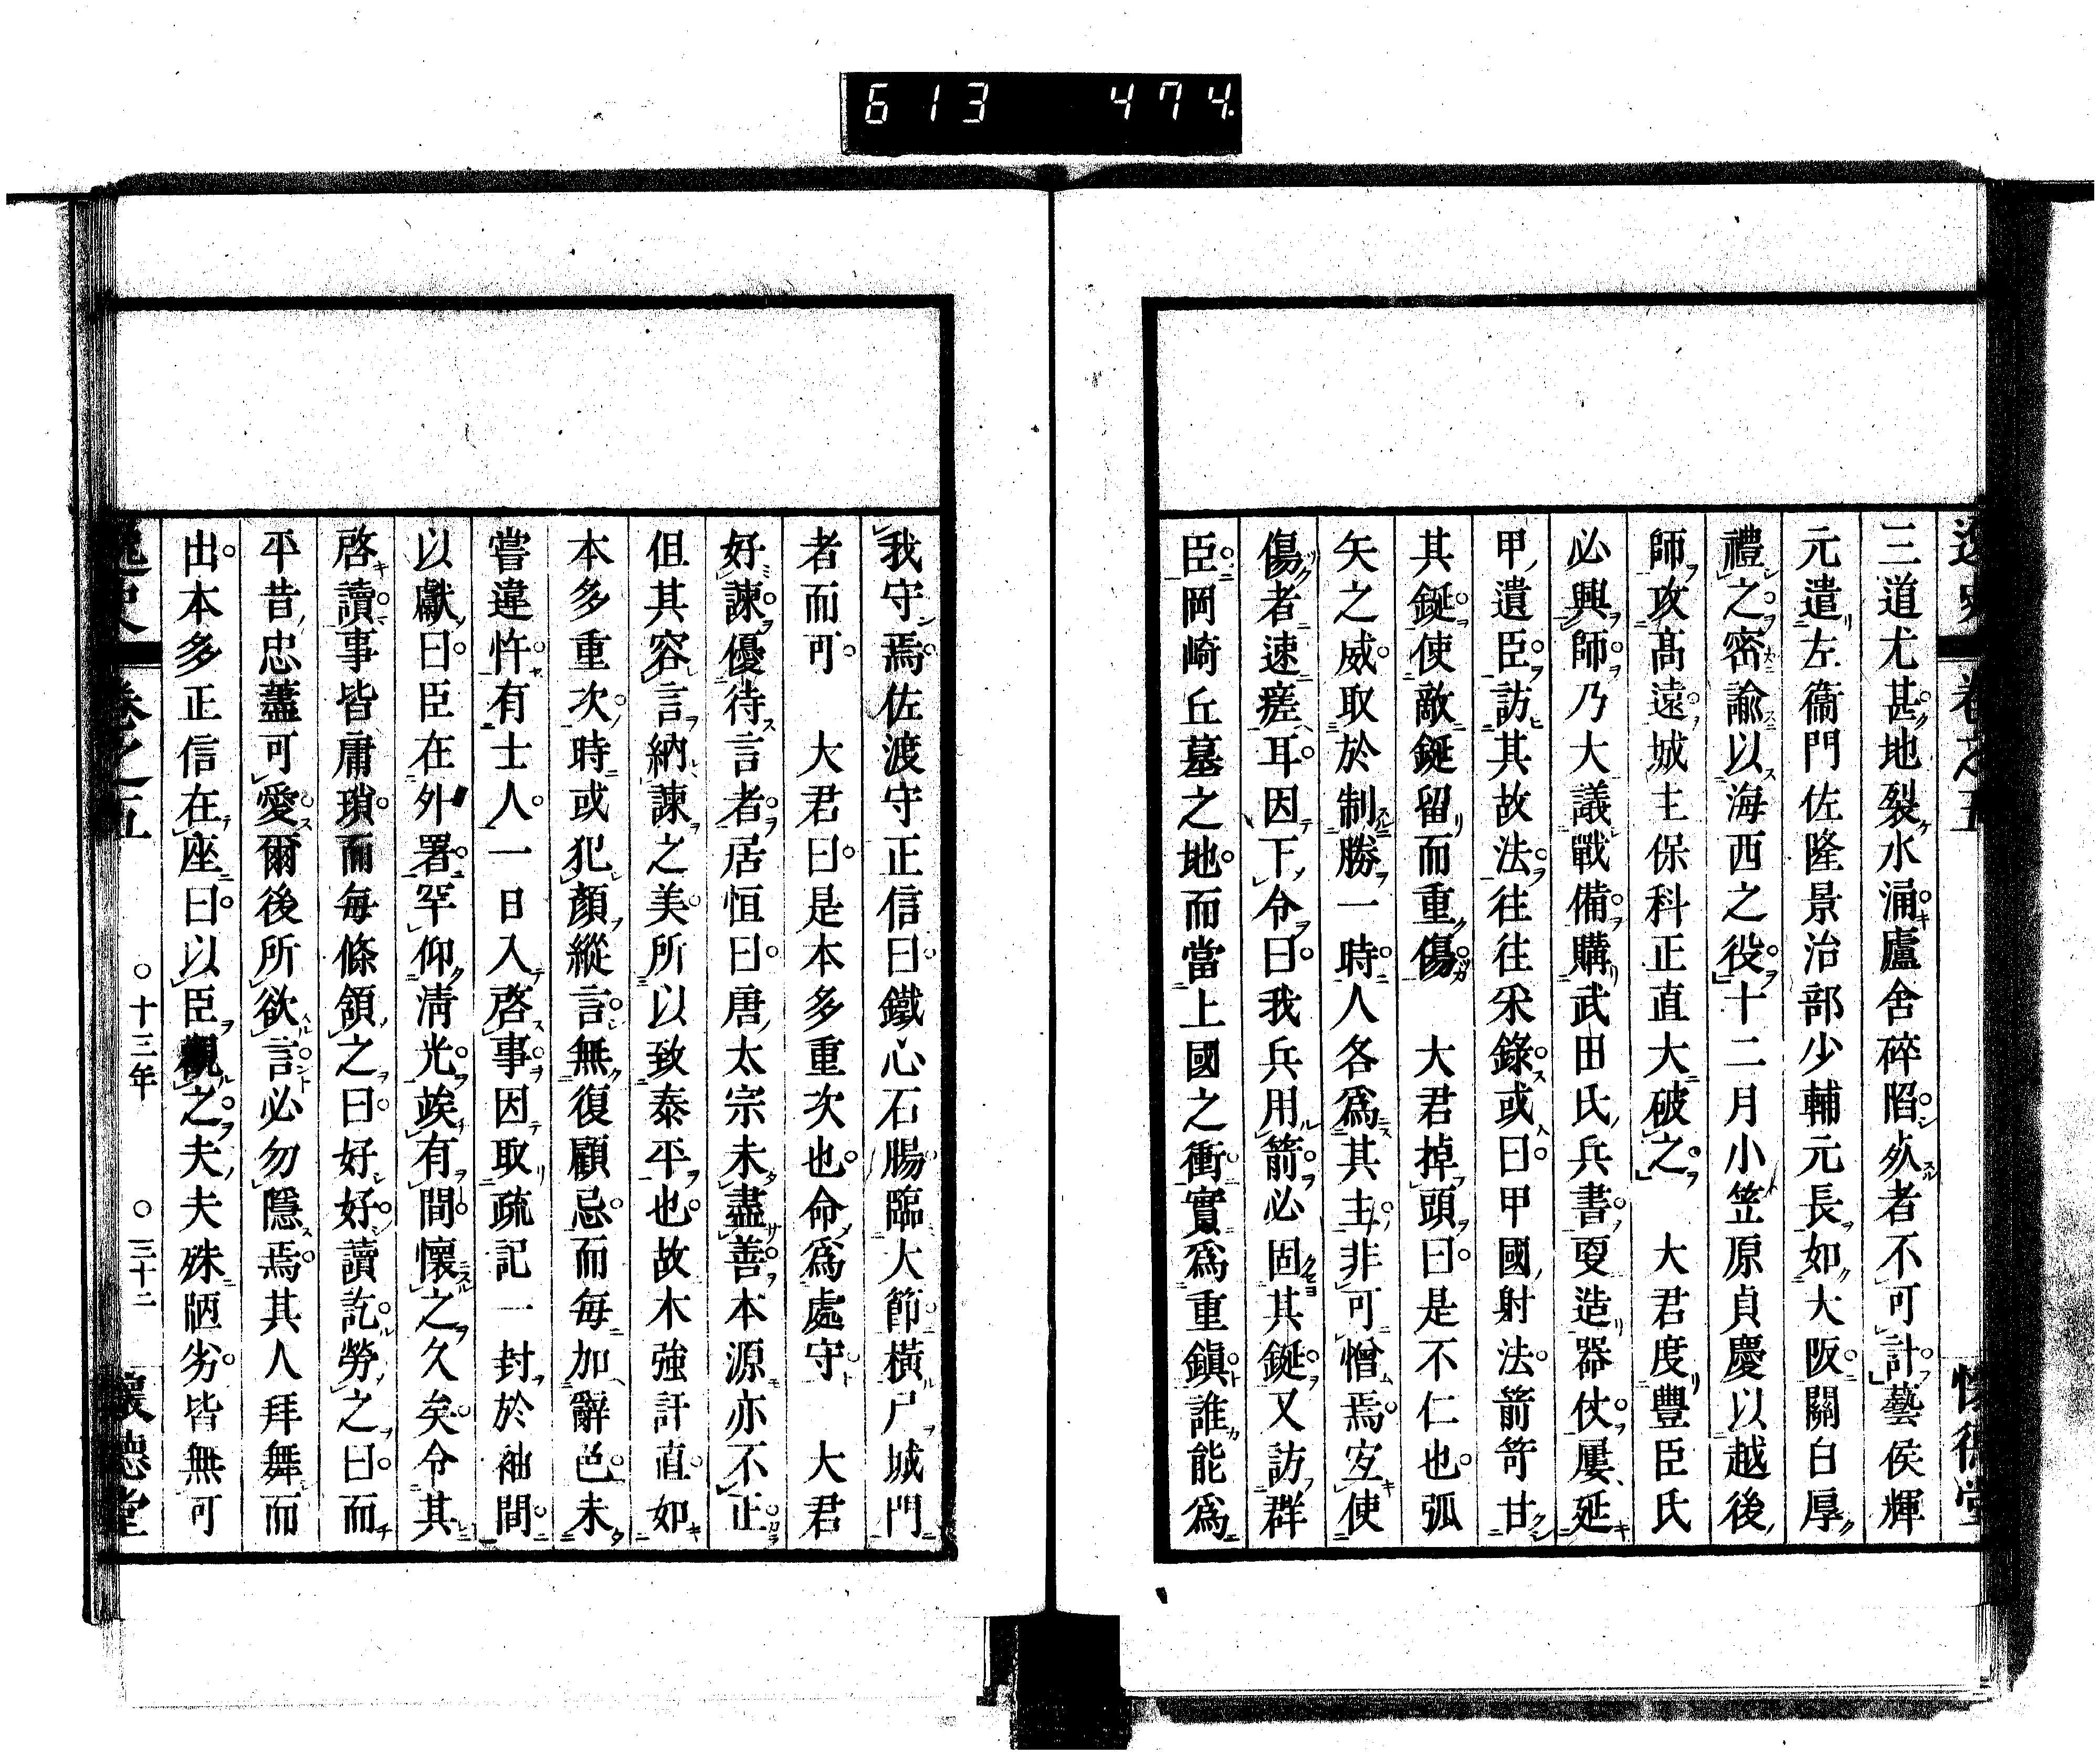 613 474
逸史 卷之五 懷德堂
三道尤甚地裂水涌廬舍碎陷死者不可計藝侯輝
元遣左衞門佐隆景治部少輔元長如大阪關白厚
禮之密諭以海西之役十二月小笠原貞慶以越後
師攻髙遠城主保科正直大破之　大君度豐臣氏
必興師乃大議戰備購武田氏兵書更造器仗屢延
甲遺臣訪其故法往往采錄或曰甲國射法箭笴甘
其鋌使敵鋌留而重傷　大君掉頭曰是不仁也弧
矢之威取於制勝一時人各爲其主非可憎焉安使
傷者速瘥耳因下令曰我兵用箭必固其鋌又訪群
臣岡崎丘墓之地而當上國之衝實爲重鎭誰能爲
我守焉佐渡守正信曰鐵心石腸臨大節橫尸城門
者而可　大君曰是本多重次也命爲處守　大君
好諫優待言者居恒曰唐太宗未盡善本源亦不正
但其容言納諫之美所以致泰平也故木強訐直如
本多重次時或犯顏縱言無復顧忌而每加辭色未
嘗違忤有士人一日入啓事因取疏記一封於袖間
以獻曰臣在外署罕仰淸光竢有間懷之久矣令其
啓讀事皆庸瑣而每條領之曰好好讀訖勞之曰而
平昔忠藎可愛爾後所欲言必勿隱焉其人拜舞而
出本多正信在座曰以臣觀之夫夫殊陋劣皆無可
逸史 卷之五 ○十三年 ○三十二 懷德堂